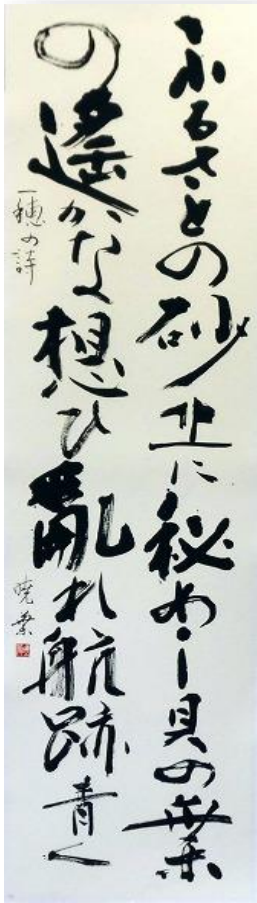 ふるさとの砂丘に秘めし貝の葉
の遙かな想ひ亂れ航跡青く
一穂の詩
暁